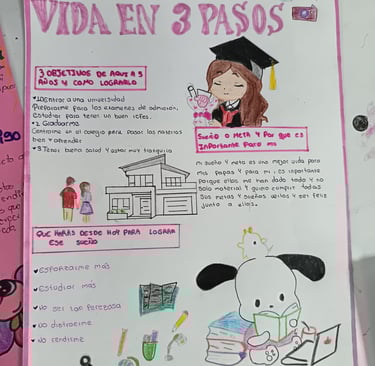 VIDA EN 3 PASOS
3 OBJETIVOS DE AQUI A 5
AÑOS Y COMO LOGRARLO
1 Entrar a una universidad
Prepararme para los examenes de admicion,
Estudiar para tener un buen icfes.
2 Graduarme
Centrarme en el colegio para pasar las materias
bien y aprender
3 Tener buena salud y estar muy tranquila
Sueño o Meta y Por que es
Importante para mi
mi sueño y meta es una mejor vida para
mis papas y para mi, es importante
porque ellos me han dado todo y no
solo material y quiero cumplir todas
sus metas y sueños, ellos y ser feliz
junto a ellos.
QUE HARAS DESDE HOY PARA LOGRAR
ESE SUEÑO
Esforzarme más
Estudiar más
No ser tan perezosa
No distraerme
No rendirme